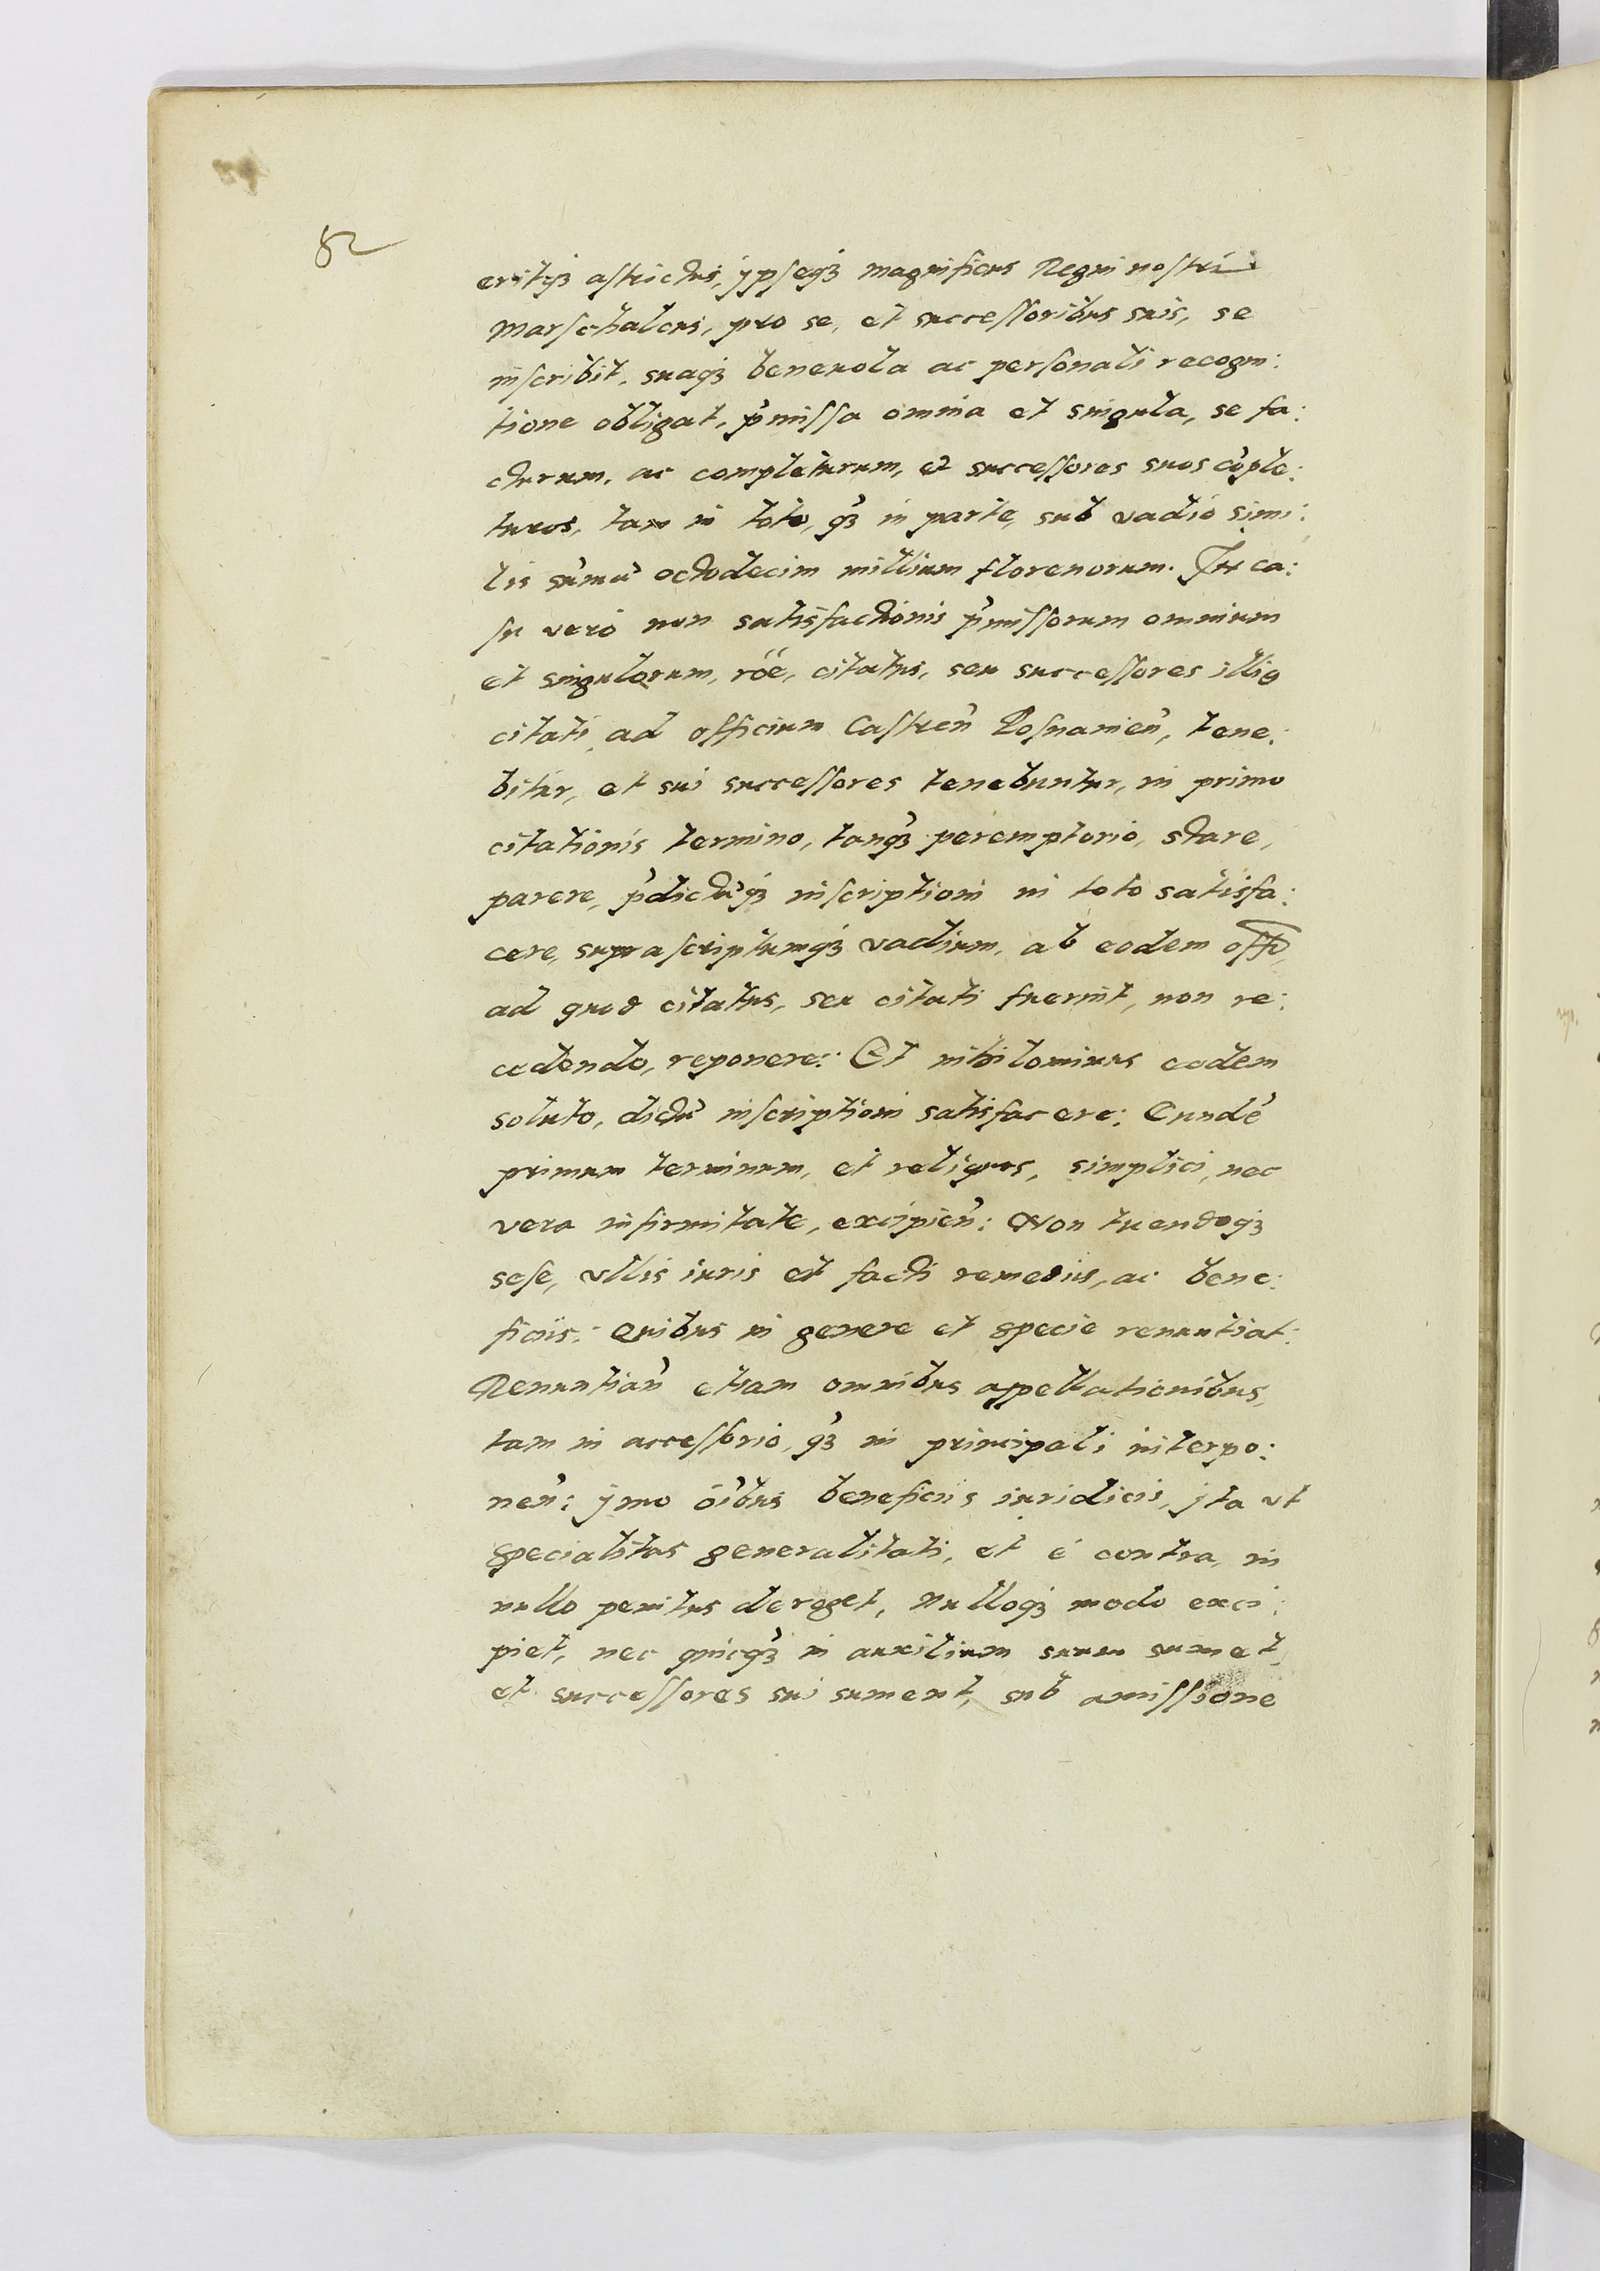 82
eritq3 astrictus, ypseq3 magnificus Regni nostri
Marschalcus, pro se, et successoribus suis, se
inscribit, suaq3 beneuola ac personali recogni:
tione obligat, p̃missa omnia et singula, se fa:
cturum, ac completurum, et successores suos cõple:
turos, tam in toto, q̃3 in parte, sub vadio simi:
lis sũmũ octodecim millium florenorum. In ca:
su verò non satisfactionis p̃missorum omnium
et singulorum, rõe, citatus, seu successores illiq
citati, ad officium Castreñ Posnanieñ, tene:
bitur, et sui successores tenebuntur, in primo
citationis termino, tanq̃3 peremptorio, stare,
parere, p̃dictũq3 inscriptioni in toto satisfa:
cere, suprascriptumq3 vadium, ab eodem offo,
ad quod citatus, seu citati fuerint, non re:
cedendo, reponere: Et nihilominus eodem
soluto, dictũ inscriptioni satisfacere: Eundẽ
primum terminum, et reliquos, simplici, nec
vera infirmitate, excipieñ: Non tuendoq3
sese, vllis iuris et facti remediis, ac bene:
ficiis: Quibus in genere et specie renuntiat:
Renuntiañ etiam omnibus appellationibus,
tam in accessorio, q̃3 in principali interpo:
neñ: ymo õibus beneficiis iuridicis, jta vt
specialitas generalitati, et è contra, in
nullo penitus deroget, Nulloq3 modo exci:
piet, nec quicq̃3 in auxilium suum sumet,
et successores sui sument, sub amissione